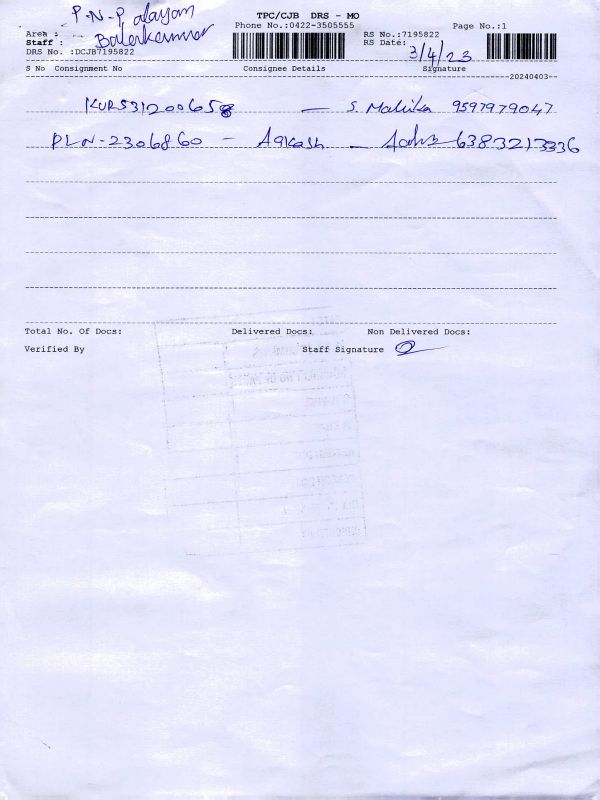 P.N.P alayam
TPC/CJB DRS - MO
Area :
Phone No.:0422-3505555
Page No.:1
Staff : Balerkumar
RS No.:7195822
RS Date: 3/4/23
DRS No. :DCJB7195822
S No Consignment No Consignee Details Signature
20240403
KUR531200658 — S. Mallika 9597979047
PLN-2306860 - Aakash - 6383213336
Total No. Of Docs: Delivered Docs: Non Delivered Docs:
Verified By Staff Signature